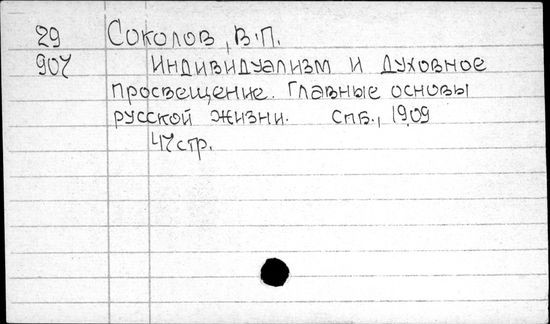 29 Соколов, В.П.
907 Индивидуализм и духовное
просвещение. Главные основы
русской жизни. Спб., 1909
47 стр.